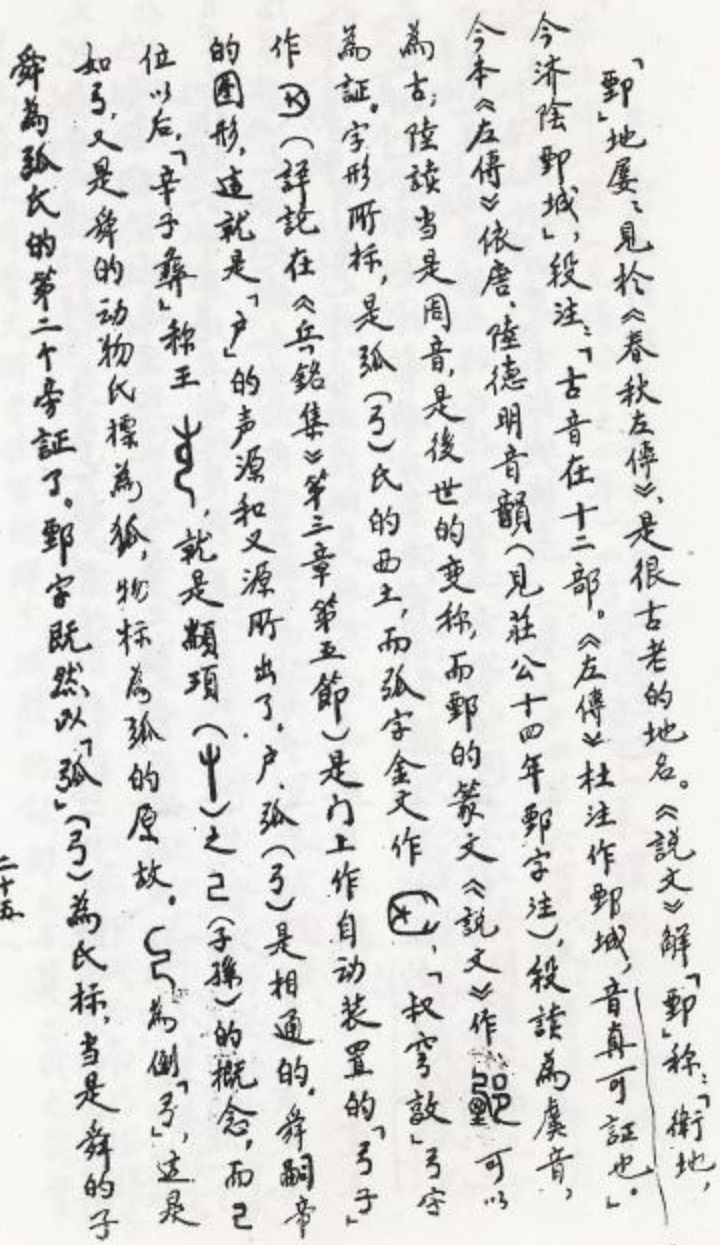 「鄄」地屡々見於《春秋左傳》、是很古老的地名。《説文》解「鄄」称:「衛地，
今济陰鄄城」，段注:「古音在十二部。《左傳》杜注作鄄城，音真可証也。」
今本《左傳》依唐、陸德明音韻(見莊公十四年鄄字注)，段讀為虞音，
為古；陸讀当是周音，是後世的变称，而鄄的篆文《説文》作 可以
為証。字形所标，是弧(弓)氏的西土，而弧字金文作 ，「叔 敦」弓字
作 (詳記在《兵銘集》第三章第五節)是门上作自动装置的「弓子」
的图形，这就是「户」的声源和义源所出了。户、弧(弓)是相通的。舜嗣帝
位以后，「辛子彝」称王 ，就是顓頊( )之己(子孫)的概念，而己
如弓，又是舜的动物氏標為狐，物标為弧的原故。 為倒「弓」，这是
舜為弧氏的第二个旁証了。鄄字既然以「弧」(弓)為氏标，当是舜的子
二十五